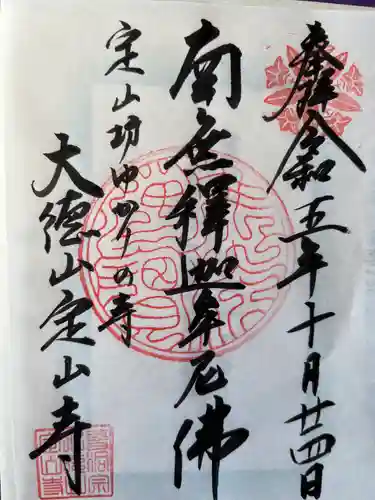 奉拝 令和五年十月廿四日
南無釋迦牟尼佛
定山坊ゆかりの寺
大徳山定山寺